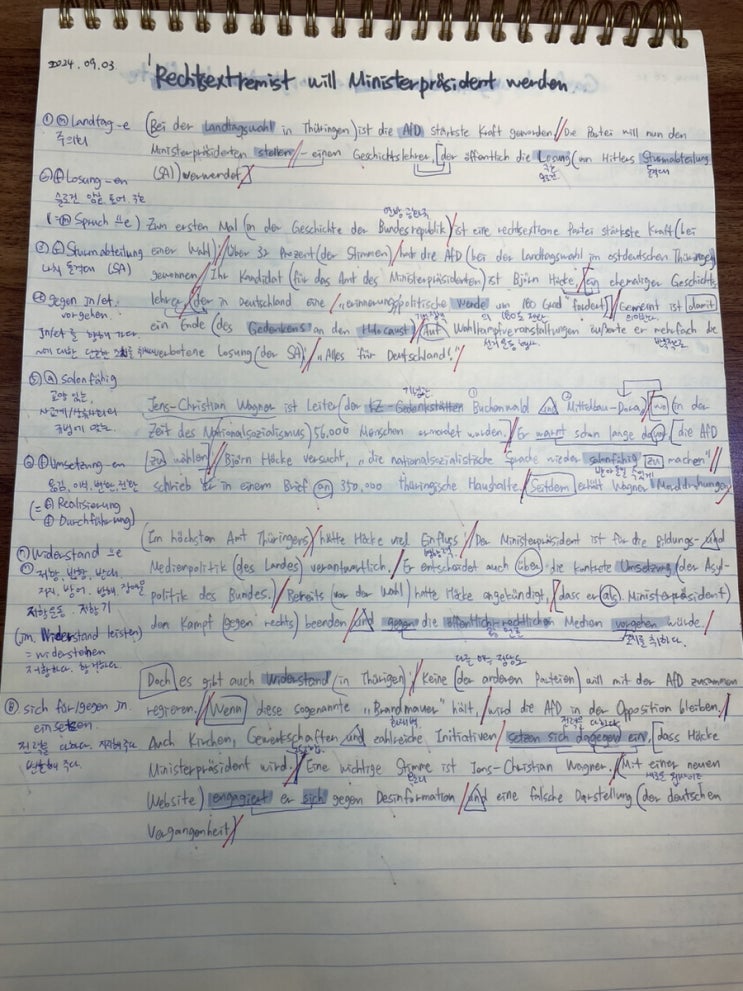 2024.09.03
Rechtsextremist will Ministerpräsident werden
① ⓝ Landtag -e
주의회
(Bei der Landtagswahl in Thüringen) ist die AfD stärkste Kraft geworden. // Die Partei will nun den
Ministerpräsidenten stellen / – einen Geschichtslehrer, [der öffentlich die Losung (von Hitlers Sturmabteilung
돌격대
슬로건
(SA)) verwendet.
ⓕ Losung -en
슬로건 암호 표어 구호
(= ⓜ Spruch ¨e)
연방 공화국
Zum ersten Mal (in der Geschichte der Bundesrepublik) ist eine rechtsextreme Partei stärkste Kraft (bei
ⓕ Sturmabteilung
나치 돌격대 (SA)
einer Wahl). // Über 32 Prozent (der Stimmen) / hat die AfD (bei der Landtagswahl im ostdeutschen Thüringen)
gewonnen. / Ihr Kandidat (für das Amt des Ministerpräsidenten) ist Björn Höcke, / ein ehemaliger Geschichts-
gegen jn/et.
vorgehen
lehrer, / der in Deutschland eine / „erinnerungspolitische Wende um 180 Grad“ fordert. / Gemeint ist damit
ein Ende (des Gedenkens an den Holocaust). / Auf Wahlkampfveranstaltungen äußerte er mehrfach die
verbotene Losung (der SA): / „Alles für Deutschland!“ /
⑤ ⓐ salonfähig
교양 있는,
Jens-Christian Wagner ist Leiter (der KZ-Gedenkstätten ① Buchenwald und ② Mittelbau-Dora, / wo (in der
Zeit des Nationalsozialismus) 56.000 Menschen ermordet wurden. / Er warnt schon lange davor, [die AfD
ⓕ Umsetzung -en
zu wählen]. / Björn Höcke versucht, „die nationalsozialistische Sprache wieder salonfähig zu machen“, //
받아들일 수 있게
schrieb er in einem Brief an 350.000 thüringische Haushalte. / Seitdem erhält Wagner Morddrohungen.
(= ⓕ Realisierung
ⓕ Durchführung)
(Im höchsten Amt Thüringens) / hätte Höcke viel Einfluss. / Der Ministerpräsident ist für die Bildungs- und
ⓜ Widerstand ¨e
저항, 반항, 반대
Medienpolitik (des Landes) verantwortlich. / Er entscheidet auch über die konkrete Umsetzung (der Asyl-
politik des Bundes). / Bereits (vor der Wahl) hatte Höcke angekündigt, [dass er (als Ministerpräsident)
저항운동
(jm. Widerstand leisten)
= widerstehen
den Kampf (gegen rechts) beenden / und gegen die öffentlich-rechtlichen Medien vorgehen würde. /
조치를 취하다.
Doch es gibt auch Widerstand (in Thürigen): / Keine (der anderen Parteien) will mit der AfD zusammen
⑧ sich für/gegen jn.
einsetzen
regieren. // Wenn diese sogenannte „Brandmauer“ hält, / wird die AfD in der Opposition bleiben. /
방화벽
Auch Kirchen, Gewerkschaften und zahlreiche Initiativen / setzen sich dagegend ein, [dass Höcke
Ministerpräsident wird. / Eine wichtige Stimme ist Jens-Christian Wagner. / (Mit einer neuen
새로운 웹사이트
Website) engagiert er sich gegen Desinformation / und eine falsche Darstellung (der deutschen
Vergangenheit).